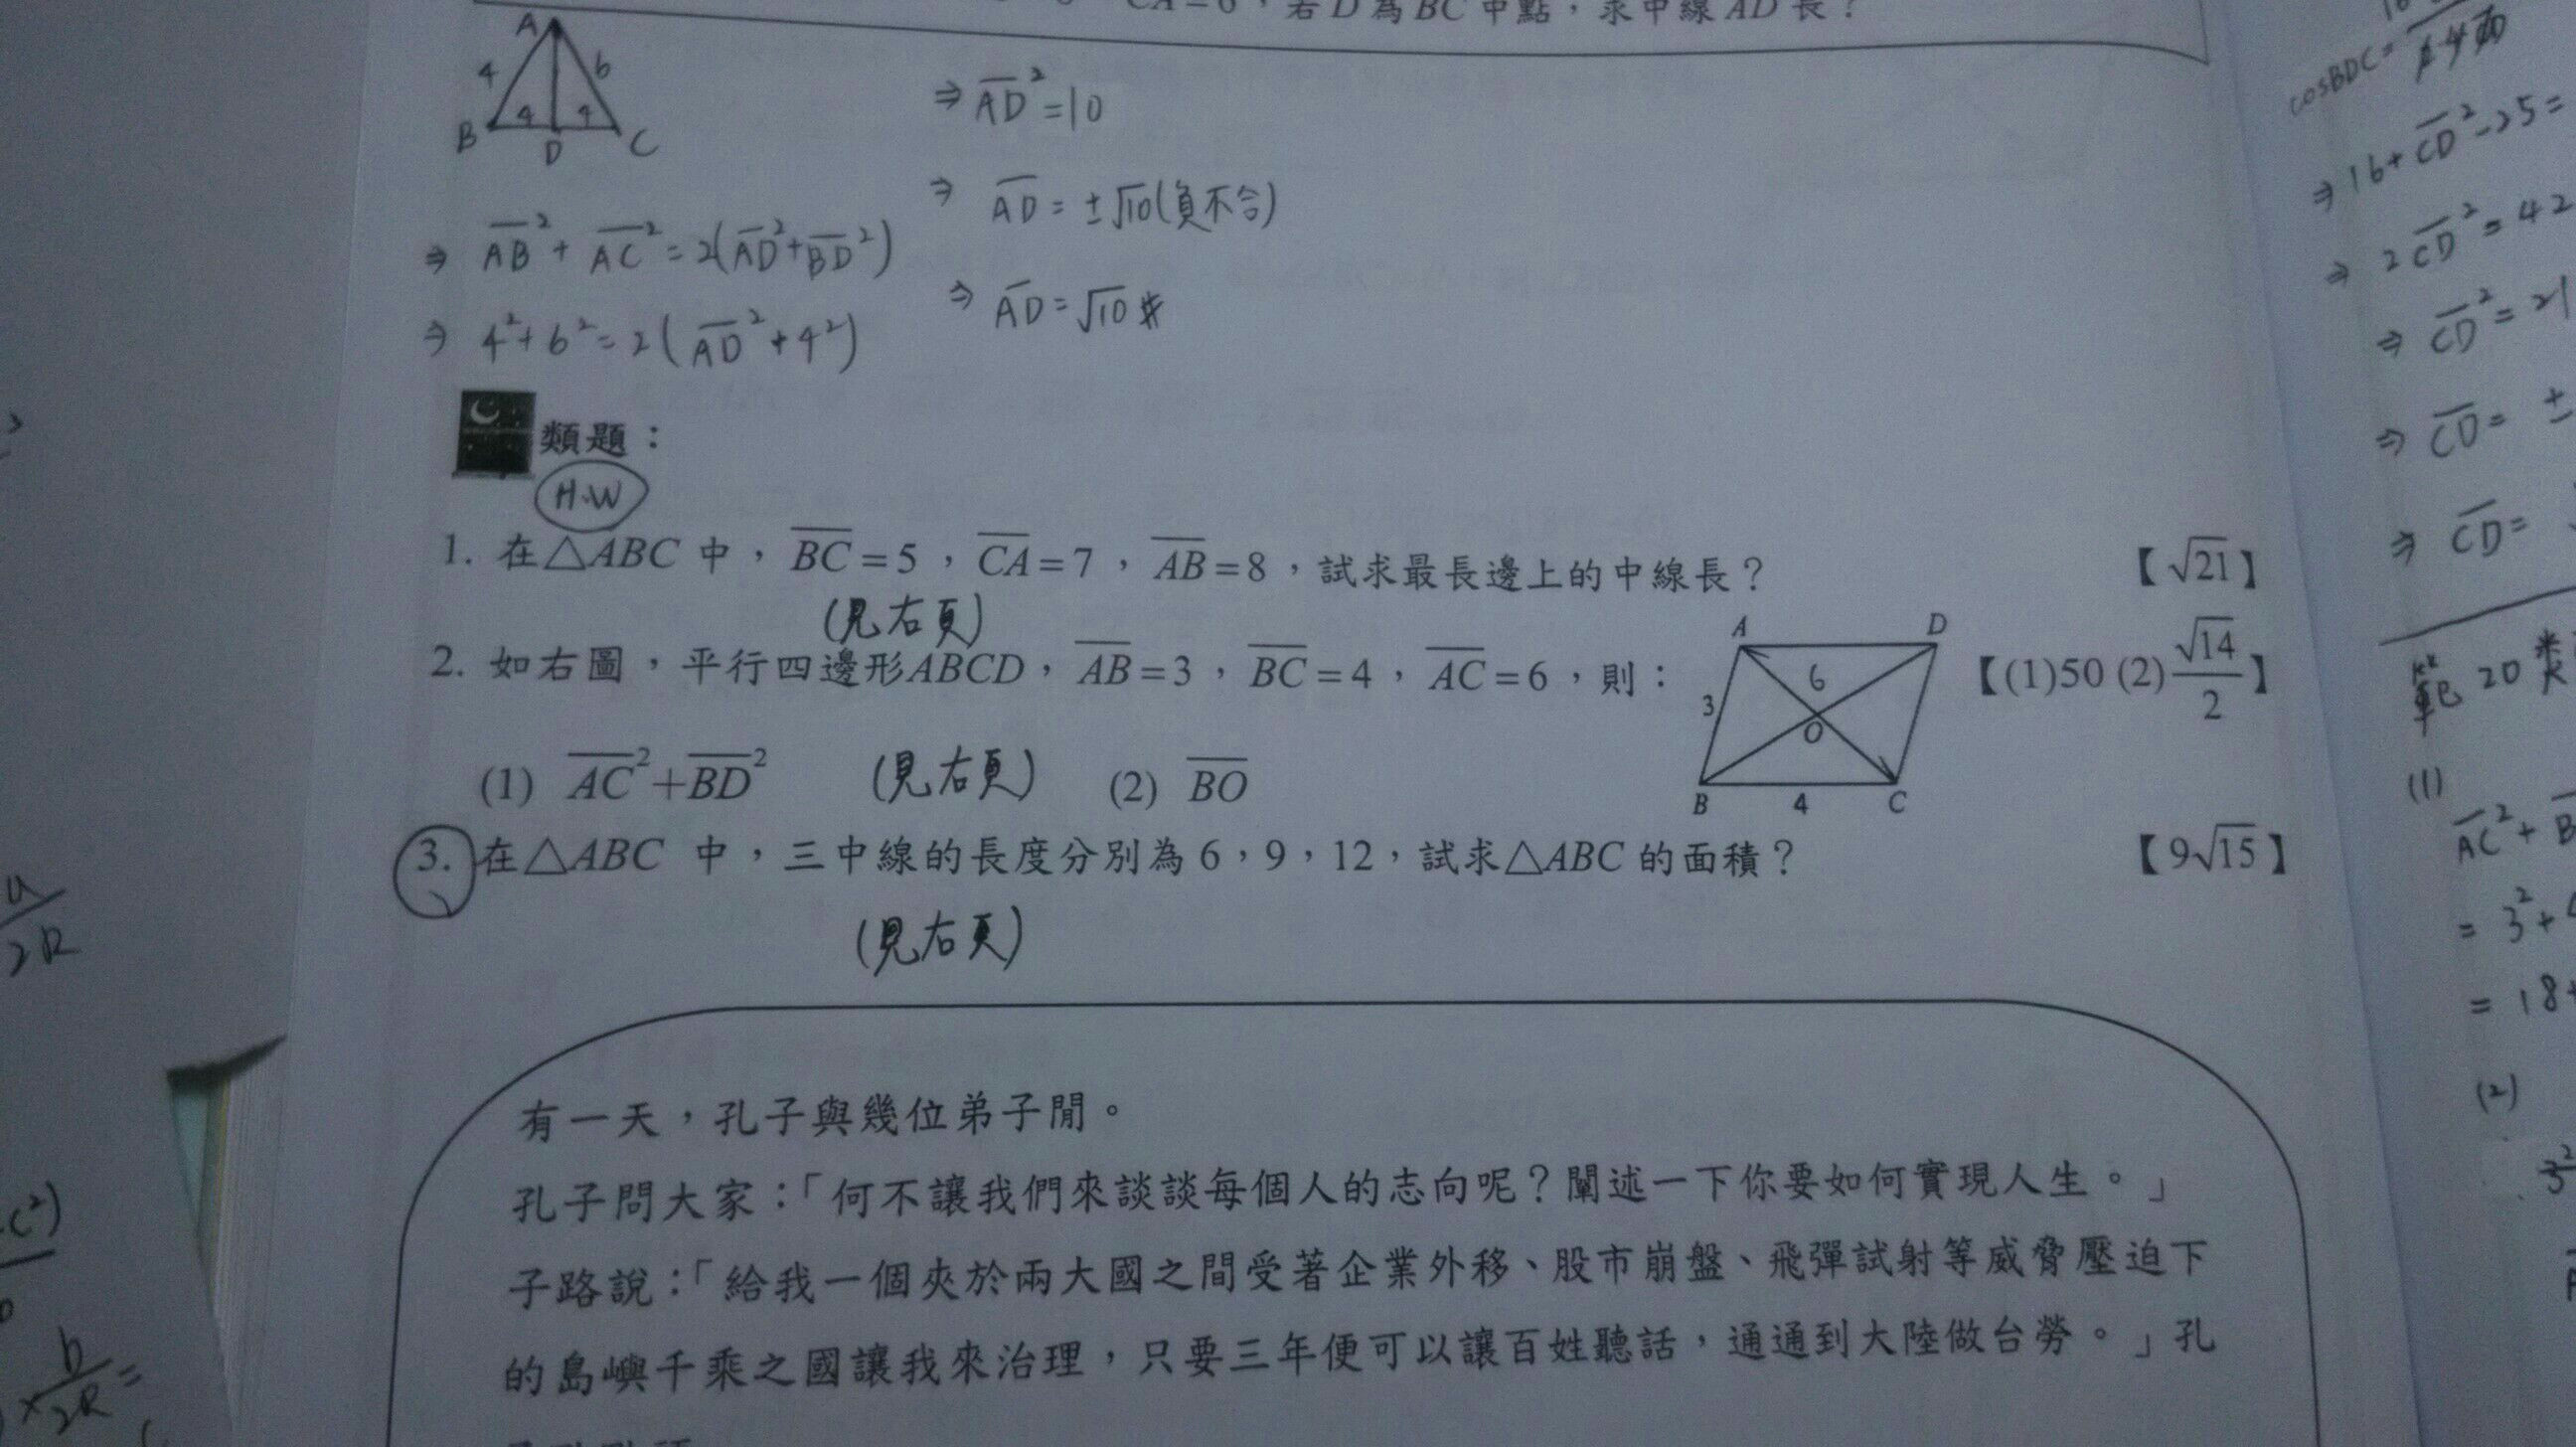 CA=6，若D為BC中點，求中線AD長？
A
4 6
4 4
B D C
⇒ AB² + AC² = 2(AD²+BD²)
⇒ 4²+6² = 2(AD²+4²)
⇒ AD² = 10
⇒ AD = ±√10 (負不合)
⇒ AD = √10 #
類題：
H.W
1. 在△ABC 中，BC=5，CA=7，AB=8，試求最長邊上的中線長？ 【√21】
(見右頁)
2. 如右圖，平行四邊形ABCD，AB=3，BC=4，AC=6，則： 【(1)50 (2)√14/2】
A D
6
3
O
B 4 C
(1) AC²+BD² (見右頁) (2) BO
3. 在△ABC 中，三中線的長度分別為 6，9，12，試求△ABC 的面積？ 【9√15】
(見右頁)
有一天，孔子與幾位弟子閒。
孔子問大家：「何不讓我們來談談每個人的志向呢？闡述一下你要如何實現人生。」
子路說：「給我一個夾於兩大國之間受著企業外移、股市崩盤、飛彈試射等威脅壓迫下
的島嶼千乘之國讓我來治理，只要三年便可以讓百姓聽話，通通到大陸做台勞。」孔
cosBDC=
⇒ 16+CD²-25=
⇒ 2CD²=42
⇒ CD²=21
⇒ CD= ±
⇒ CD=
範 20 類
(1)
AC²+
= 3²+
= 18+
(2)
3²
a/2R
c²)
×b/2R=